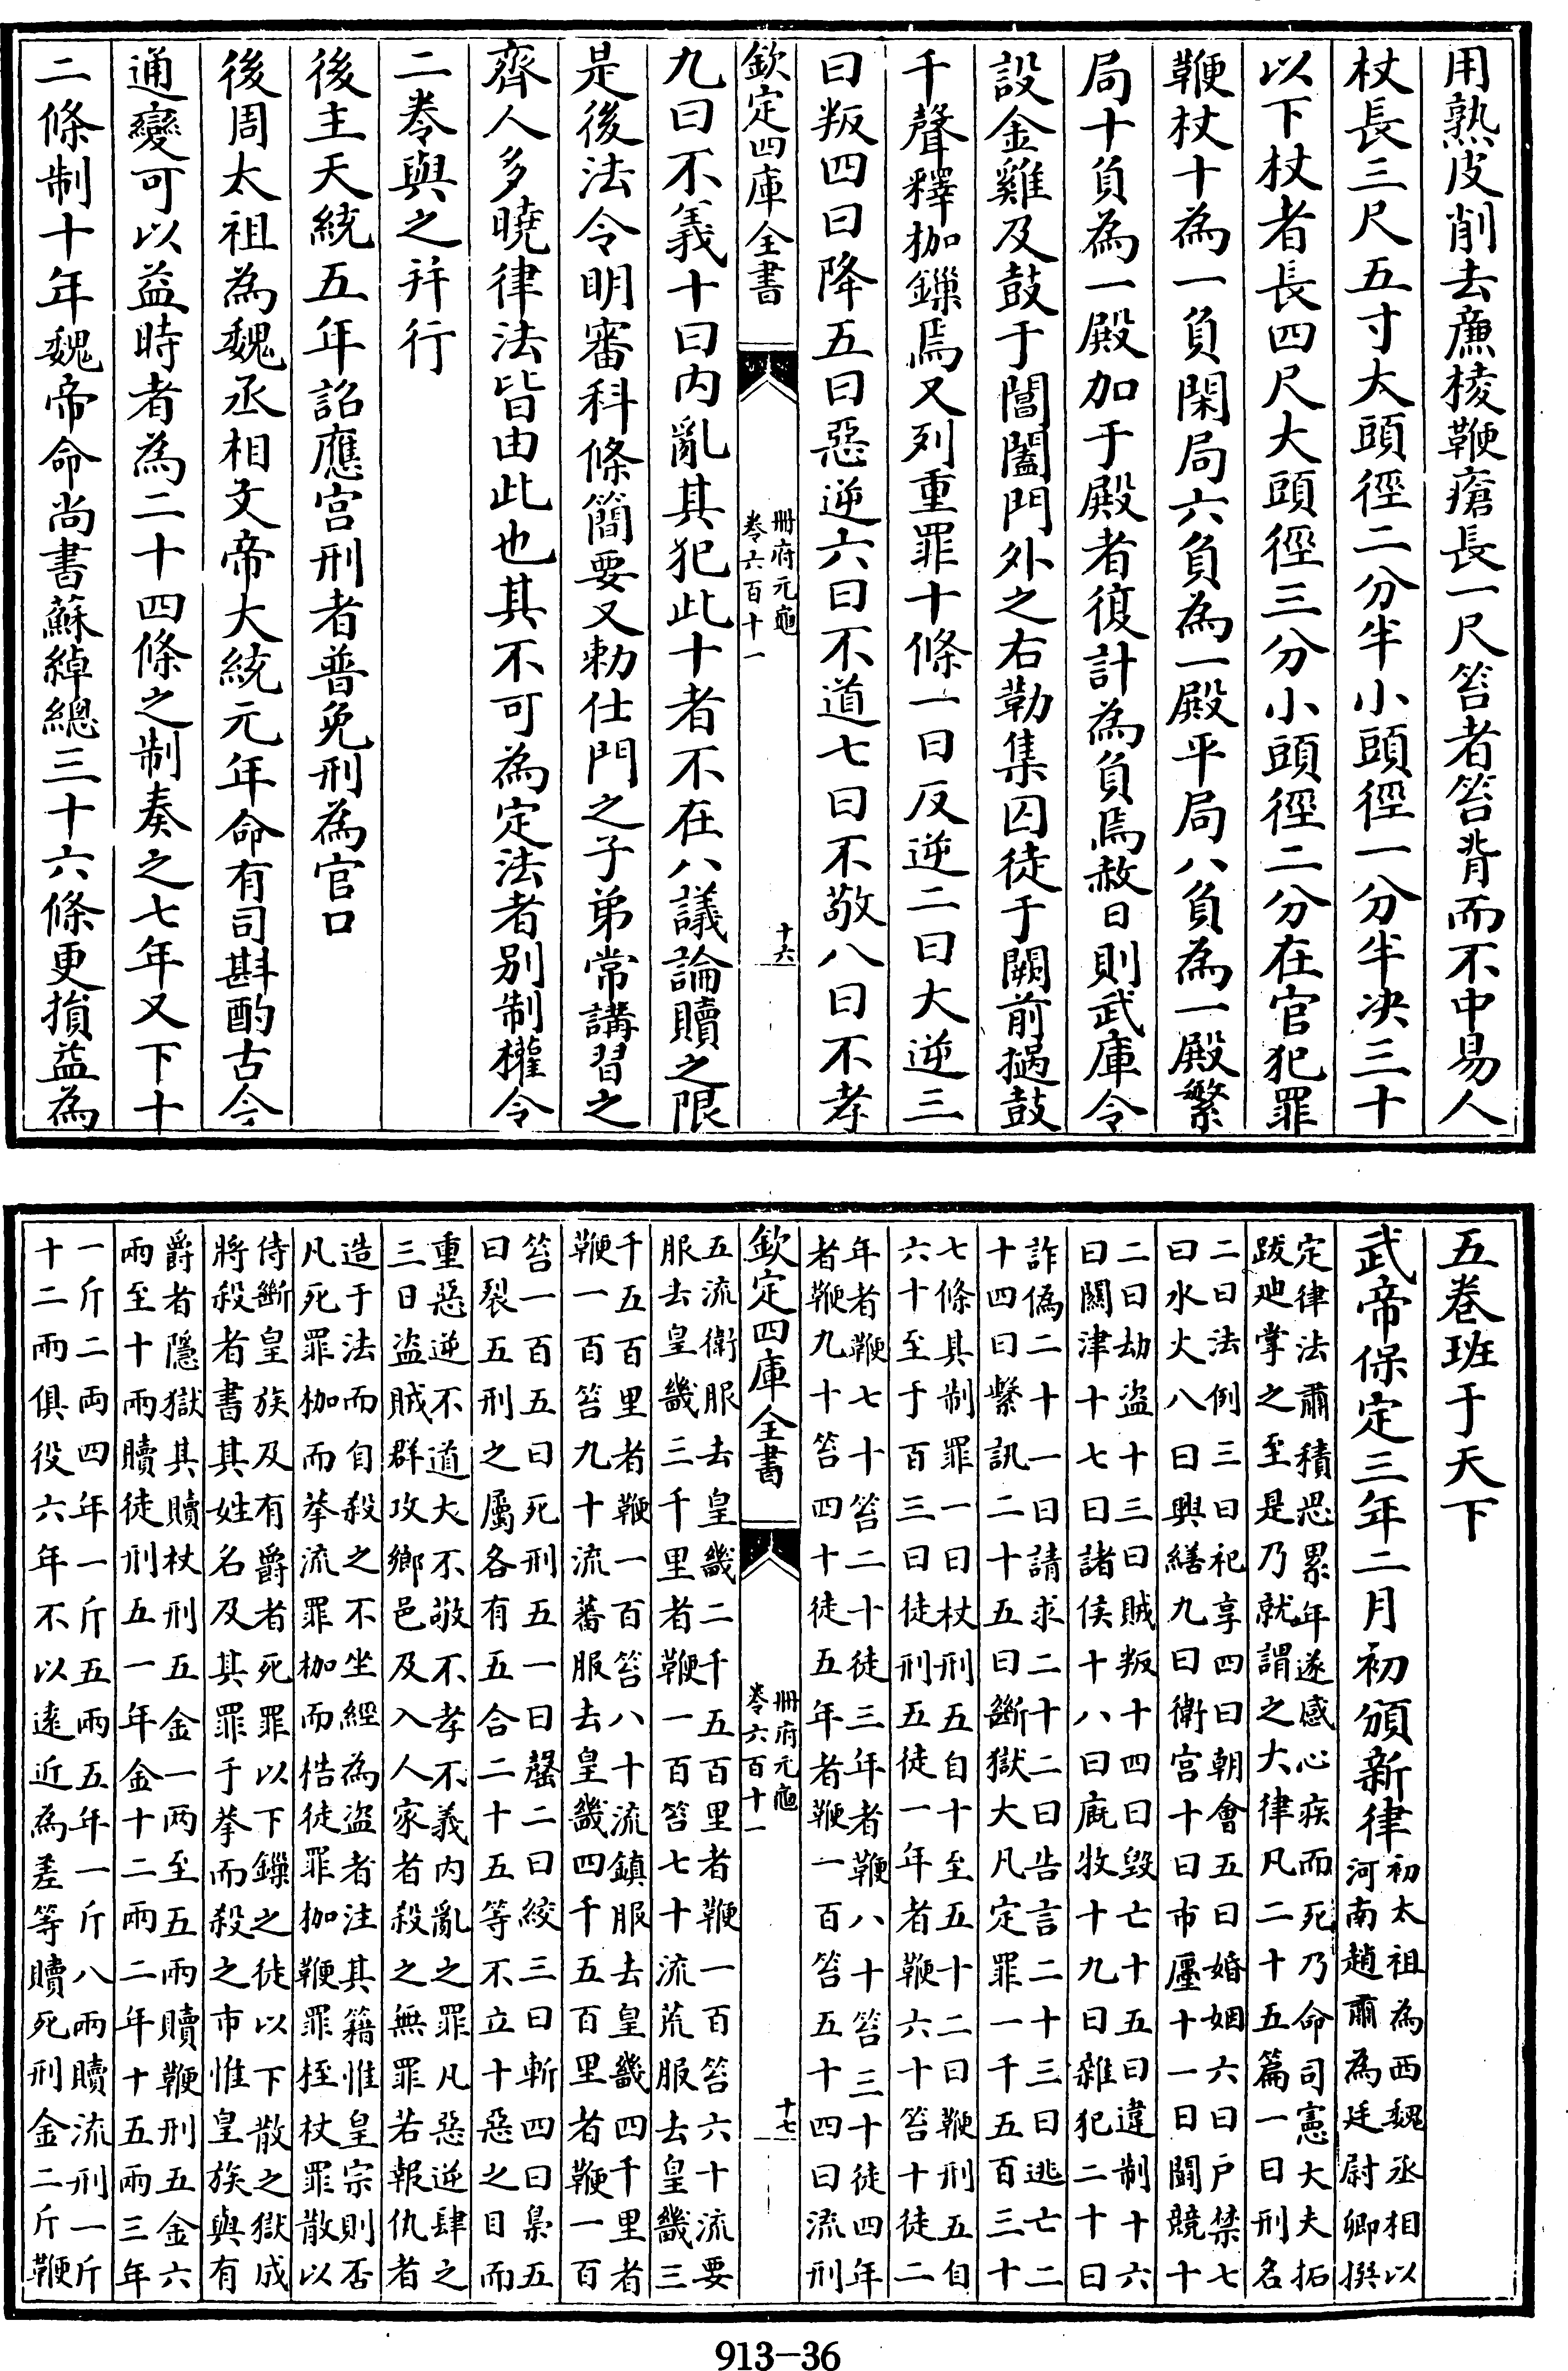 用熟皮削去亷棱鞭瘡長一尺笞者笞背而不中易人
杖長三尺五寸大頭徑二分半小頭徑一分半决三十
以下杖者長四尺大頭徑三分小頭徑二分在官犯罪
鞭杖十為一負閑局六負為一殿平局八負為一殿繁
局十負為一殿加于殿者復計為負焉赦日則武庫令
設金雞及鼓于閶闔門外之右勒集囚徒于闕前撾鼓
千聲釋枷鏁焉又列重罪十條一曰反逆二曰大逆三
曰叛四曰降五曰惡逆六曰不道七曰不敬八曰不孝
欽定四庫全書
冊府元龜
卷六百十一
十六
九曰不義十曰内亂其犯此十者不在八議論贖之限
是後法令明審科條簡要又勅仕門之子弟常講習之
齊人多曉律法皆由此也其不可為定法者别制權令
二卷與之幷行
後主天統五年詔應宫刑者普免刑為官口
後周太祖為魏丞相文帝大統元年命有司斟酌古今
通變可以益時者為二十四條之制奏之七年又下十
二條制十年魏帝命尚書蘇綽總三十六條更損益為
五卷班于天下
武帝保定三年二月初頒新律初太祖為西魏丞相以
河南趙肅為廷尉卿撰
定律法肅積思累年遂感心疾而死乃命司憲大夫拓
跋廸掌之至是乃就謂之大律凡二十五篇一曰刑名
二曰法例三曰祀享四曰朝會五曰婚姻六曰户禁七
曰水火八曰興繕九曰衛宫十曰市㕓十一曰鬭競十
二曰劫盗十三曰賊叛十四曰毁亡十五曰違制十六
曰關津十七曰諸侯十八曰廐牧十九曰雜犯二十曰
詐偽二十一曰請求二十二曰告言二十三曰逃亡二
十四曰繫訊二十五曰斷獄大凡定罪一千五百三十
七條其制罪一曰杖刑五自十至五十二曰鞭刑五自
六十至于百三曰徒刑五徒一年者鞭六十笞十徒二
年者鞭七十笞二十徒三年者鞭八十笞三十徒四年
者鞭九十笞四十徒五年者鞭一百笞五十四曰流刑
欽定四庫全書
冊府元龜
卷六百十一
十七
五流衛服去皇畿二千五百里者鞭一百笞六十流要
服去皇畿三千里者鞭一百笞七十流荒服去皇畿三
千五百里者鞭一百笞八十流鎮服去皇畿四千里者
鞭一百笞九十流蕃服去皇畿四千五百里者鞭一百
笞一百五曰死刑五一曰罄二曰絞三曰斬四曰梟五
曰裂五刑之屬各有五合二十五等不立十惡之目而
重惡逆不道大不敬不孝不義内亂之罪凡惡逆肆之
三日盗賊群攻鄉邑及入人家者殺之無罪若報仇者
造于法而自殺之不坐經為盗者注其籍惟皇宗則否
凡死罪枷而拲流罪枷而梏徒罪枷鞭罪桎杖罪散以
侍斷皇族及有爵者死罪以下鏁之徒以下散之獄成
將殺者書其姓名及其罪于拲而殺之市惟皇族與有
爵者隱獄其贖杖刑五金一两至五兩贖鞭刑五金六
兩至十兩贖徒刑五一年金十二兩二年十五兩三年
一斤二兩四年一斤五兩五年一斤八兩贖流刑一斤
十二兩俱役六年不以遠近為差等贖死刑金二斤鞭
913-36